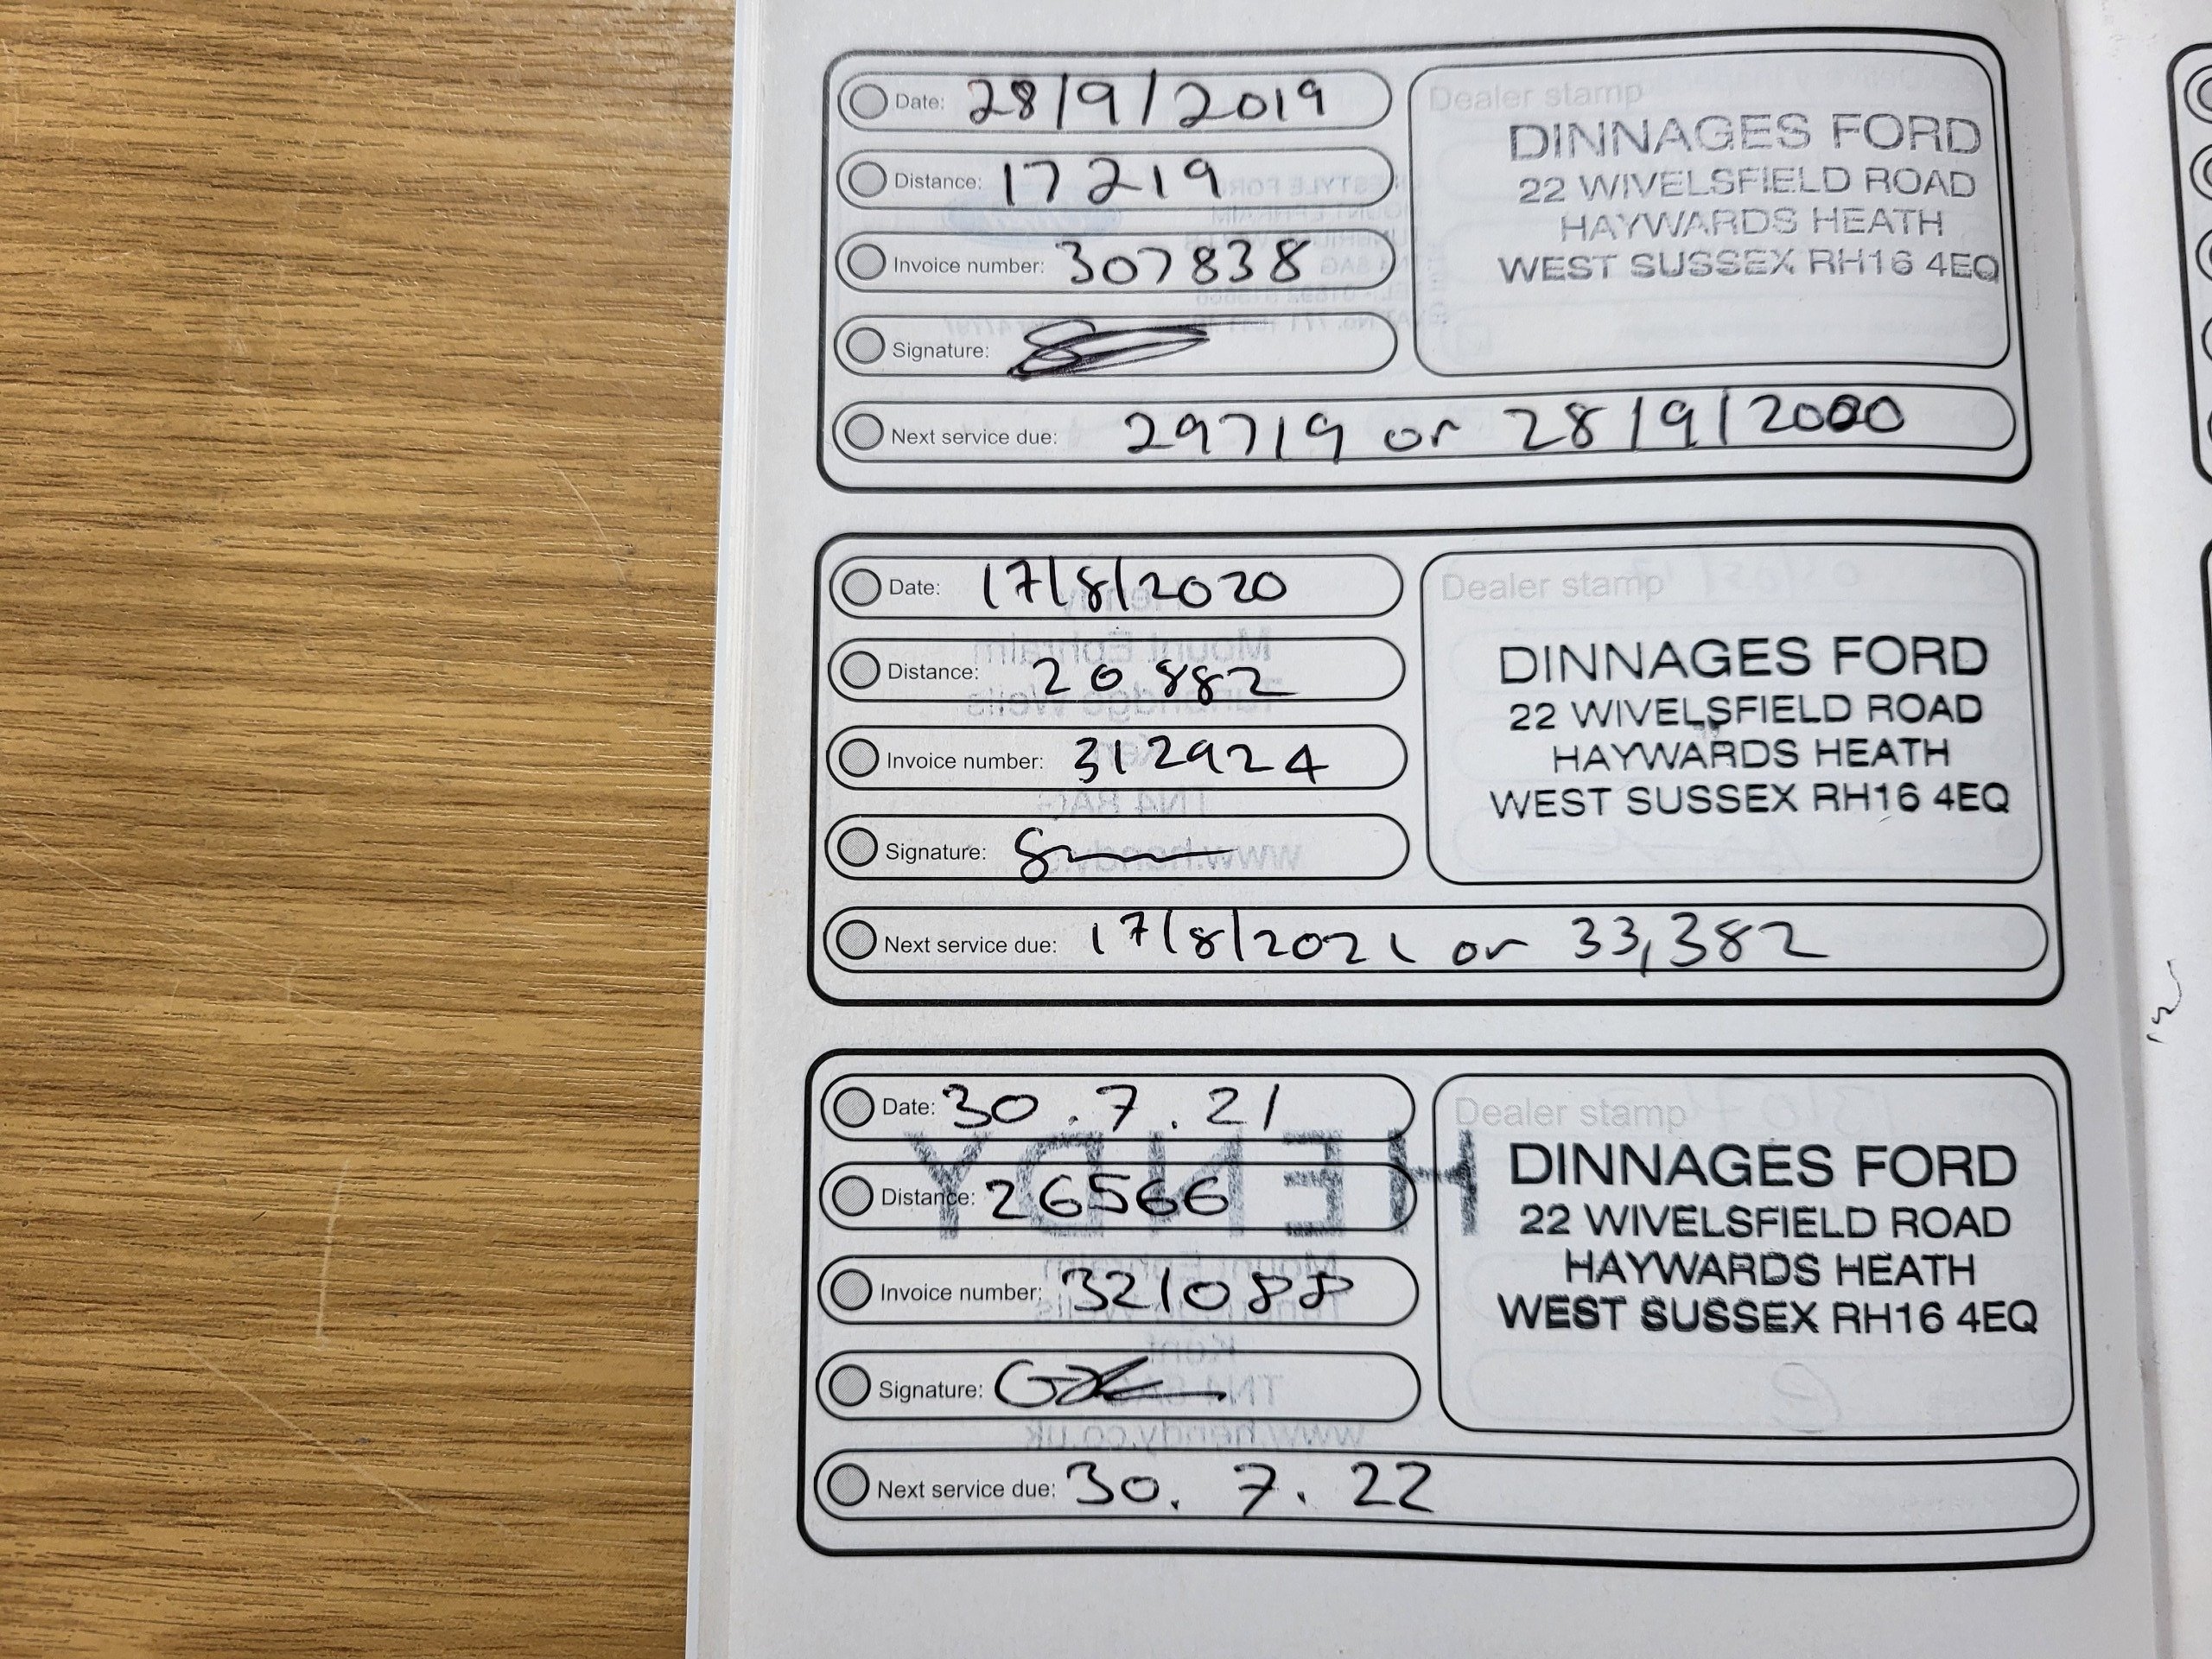 Date: 28/9/2019
Distance: 17219
Invoice number: 307838
Signature:
Next service due: 29719 or 28/9/2000
Dealer stamp
DINNAGES FORD
22 WIVELSFIELD ROAD
HAYWARDS HEATH
WEST SUSSEX RH16 4EQ
Date: 17/8/2020
Distance: 20882
Invoice number: 312924
Signature:
Next service due: 17/8/2021 or 33,382
Dealer stamp
DINNAGES FORD
22 WIVELSFIELD ROAD
HAYWARDS HEATH
WEST SUSSEX RH16 4EQ
Date: 30.7.21
Distance: 26566
Invoice number: 321088
Signature:
Next service due: 30.7.22
Dealer stamp
DINNAGES FORD
22 WIVELSFIELD ROAD
HAYWARDS HEATH
WEST SUSSEX RH16 4EQ